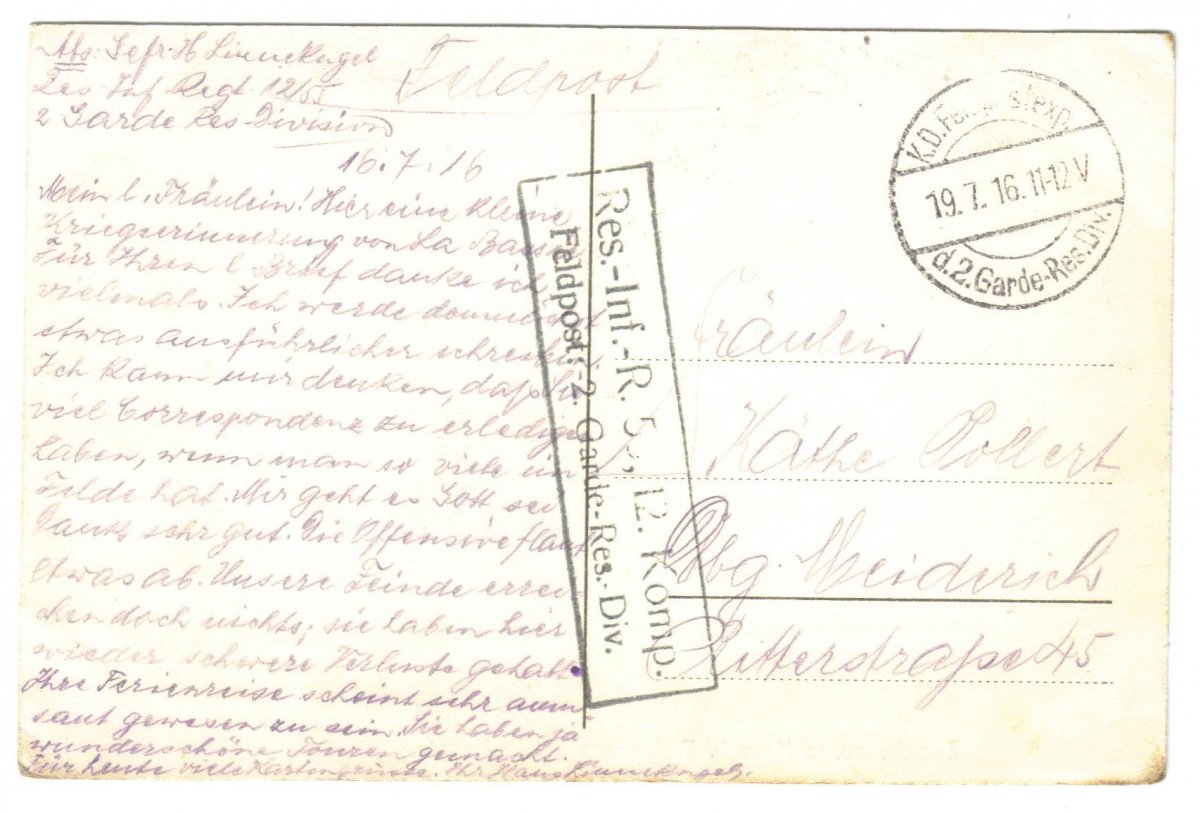 Abs: Gefr. H Linnekugel
Res. Inf. Regt. 12/55
2 Garde Res Division
Feldpost
16.7.16
Mein l. Fräulein! Hier eine kleine
Kriegserinnerung von La Bassée
Für Ihren l Brief danke ich
vielmals. Ich werde demnächst
etwas ausführlicher schreiben
Ich kann mir denken, daß Sie
viel Correspondenz zu erledigen
haben, wenn man so viele im
Felde hat. Mir geht es Gott sei
Dank sehr gut. Die Offensive flaut
etwas ab. Unsere Feinde errei-
chen doch nichts; sie haben hier
wieder schwere Verluste gehabt
Ihre Ferienreise scheint sehr amü-
sant gewesen zu sein. Sie haben ja
wunderschöne Touren gemacht.
Für heute viele Kartengrüsse. Ihr Hans Linnekugel.
Res.-Inf.-R. 55, 12. Komp.
Feldpost: 2. Garde-Res.-Div.
K.D. Feldpostexp.
19.7.16. 11-12 V
d. 2. Garde-Res.Div.
Fräulein
Käthe Pollert
Dbg. Meiderich
Ritterstraße 45